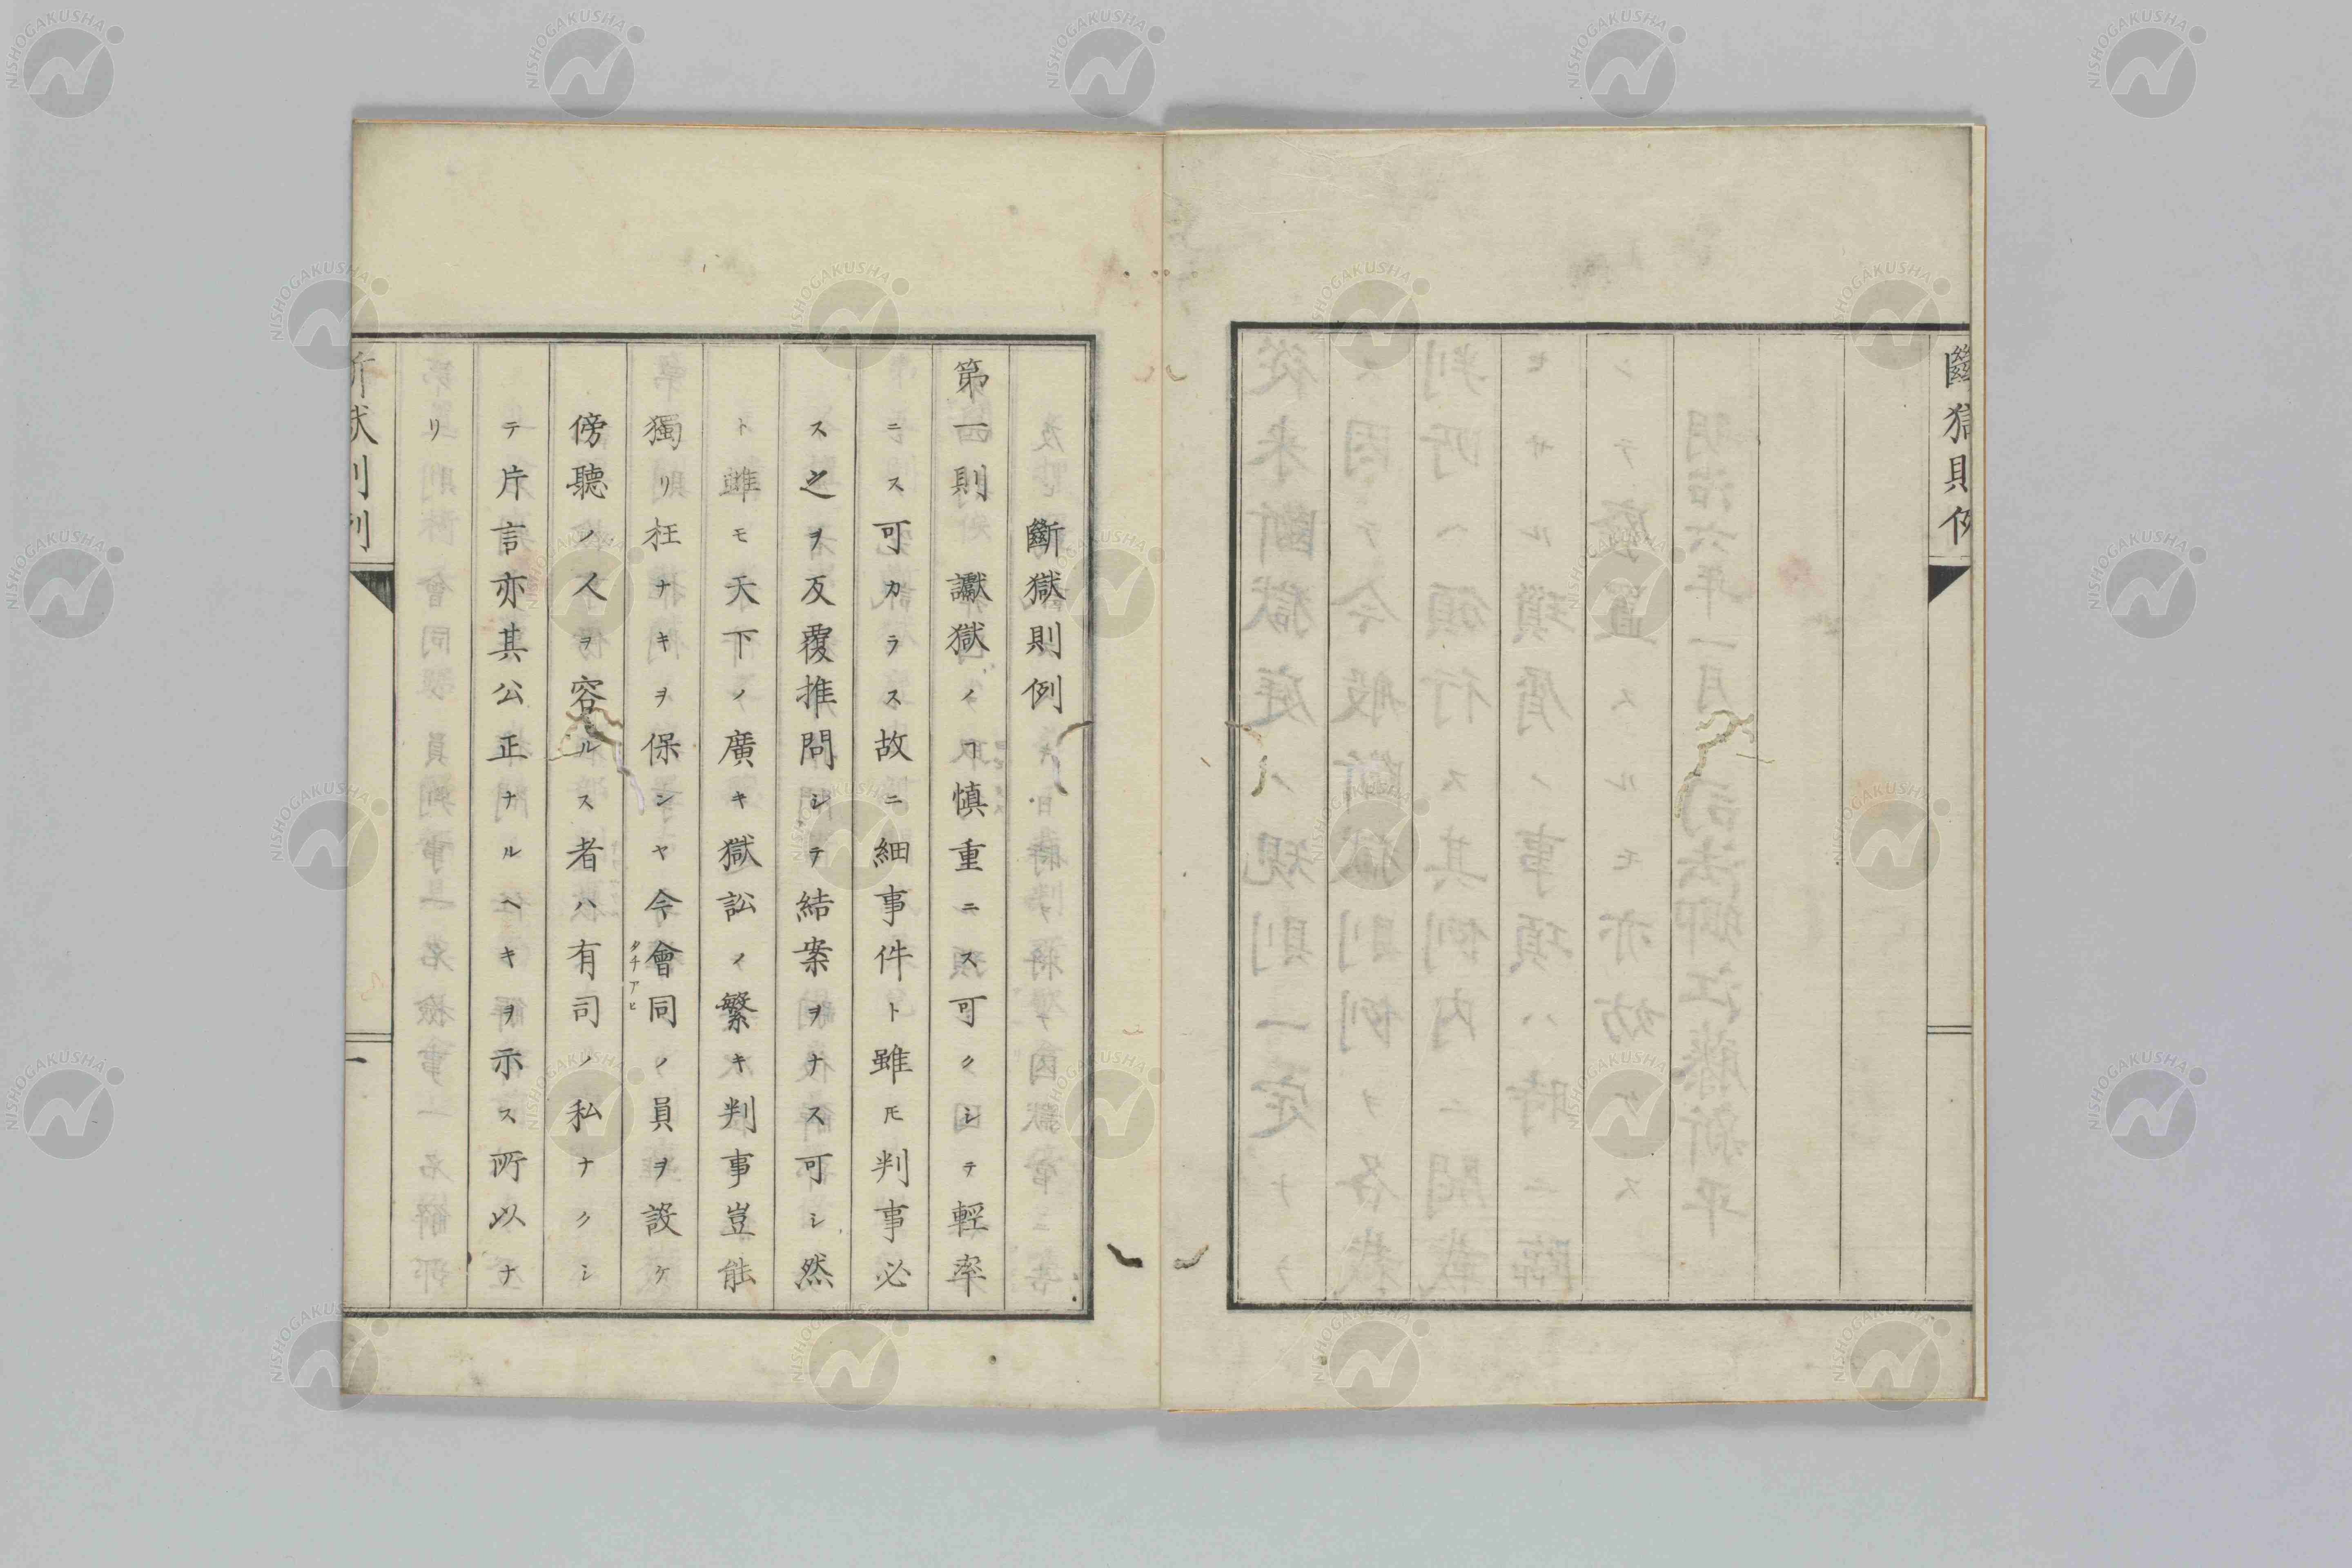 斷獄則例
斷獄則例
第一則 讞獄ノヿ愼重ニス可クシテ輕率
ニス可カラス故ニ細事件ト雖𪜈判事必
ス之ヲ反覆推問シテ結案ヲナス可シ然
ト雖モ天下ノ廣キ獄訟ノ繁キ判事豈能
獨リ枉ナキヲ保ンヤ今會同ノ員ヲ設ケ
タチアヒ
傍聽ノ人ヲ容ルス者ハ有司ノ私ナクシ
テ片言亦其公正ナルヘキヲ示ス所以ナ
リ
斷獄則例
一
NISHOGAKUSHA